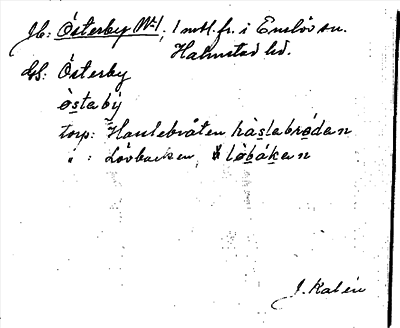 Jb: Österby No 1, 1 mtl. fr. i Enslöv sn.
Halmstad hd.
GS: Österby
østabý
torp: Hasslebråten hàslabrødan
" : Lövbacken, løbákan
J. Kalén